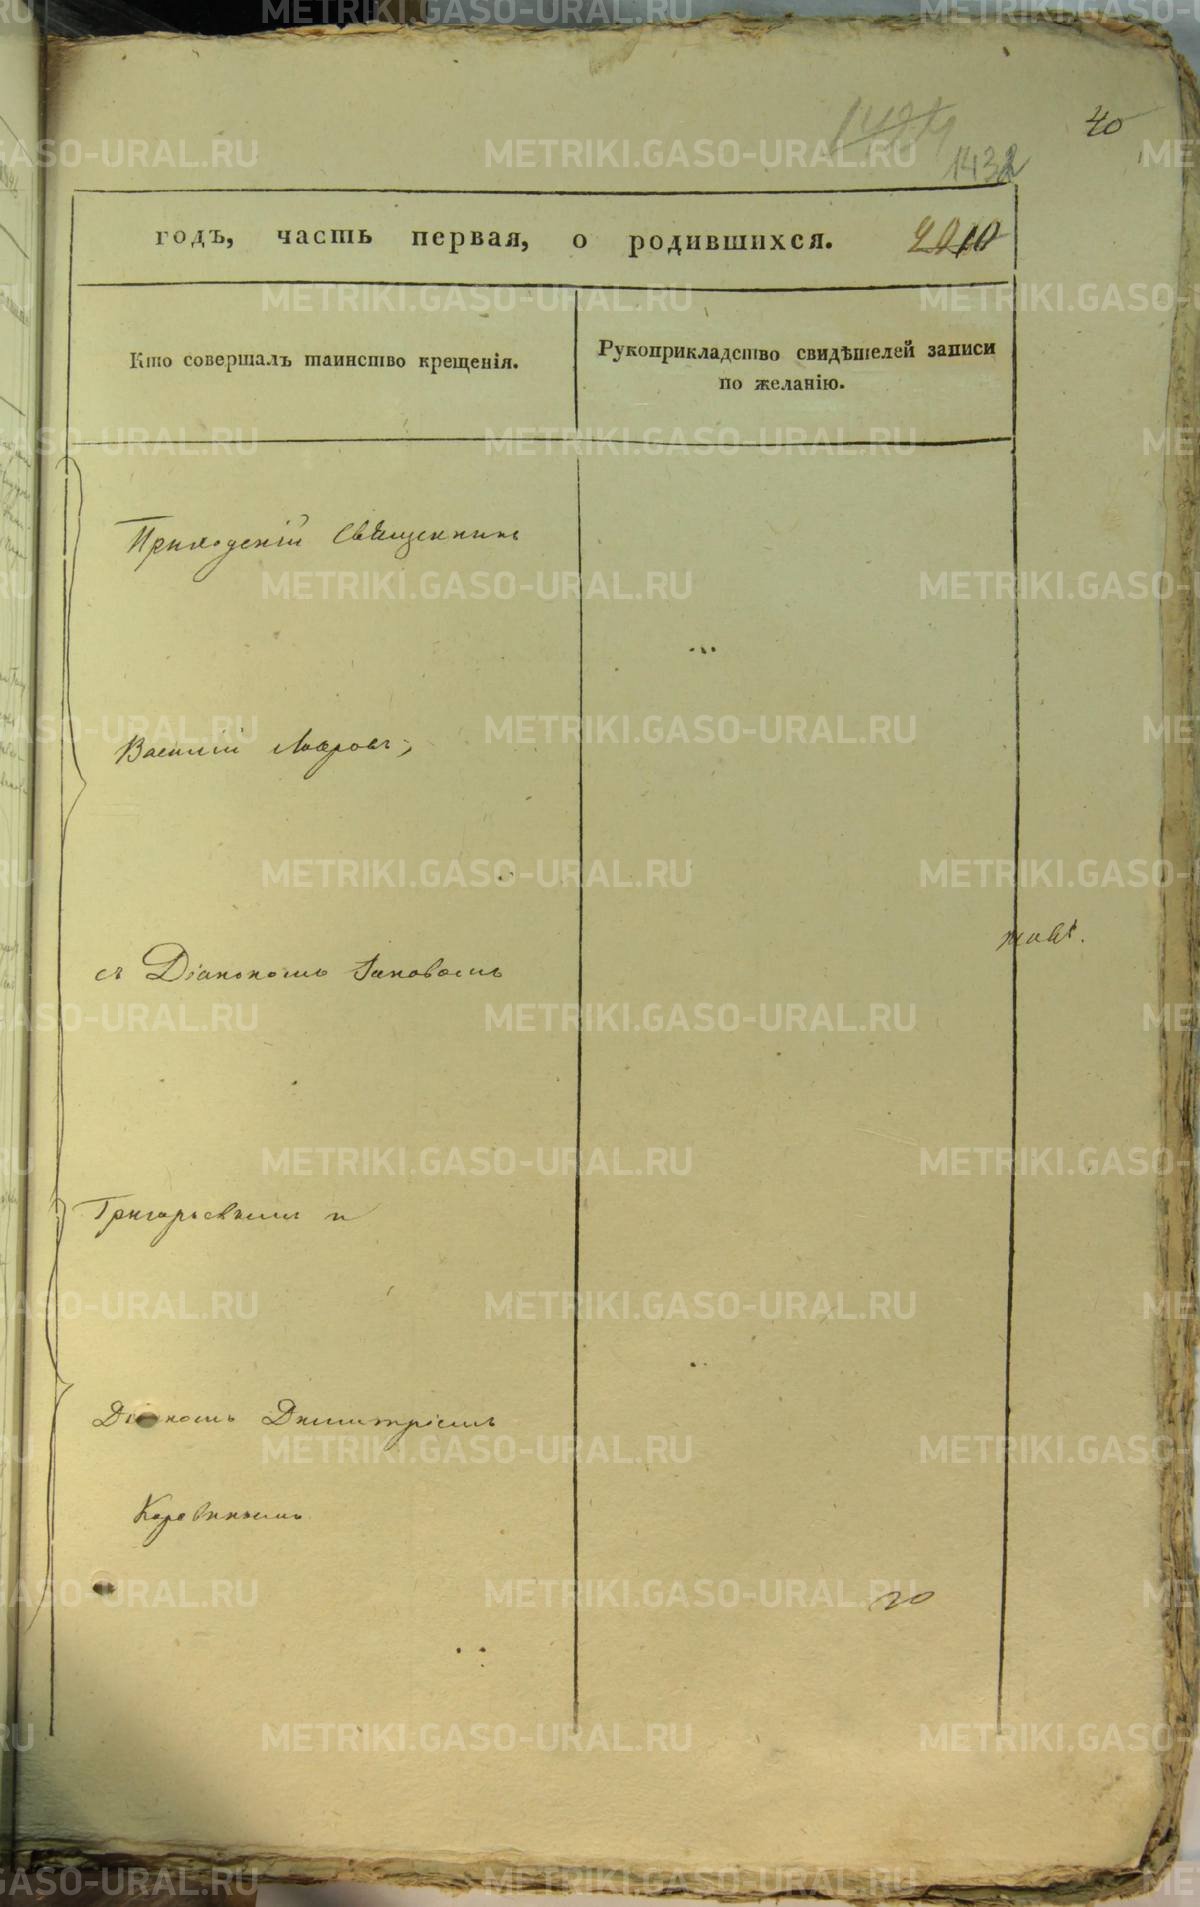 40
1432
годъ, часть первая, о родившихся.
Кто совершалъ таинство крещенія.
Рукоприкладство свидѣтелей записи
по желанію.
Приходскій Священникъ
Василій Лавровъ,
съ Діакономъ Іаковомъ
Григорьевымъ и
Діакономъ Димитріемъ
Коровинымъ
20
METRIKI.GASO-URAL.RU